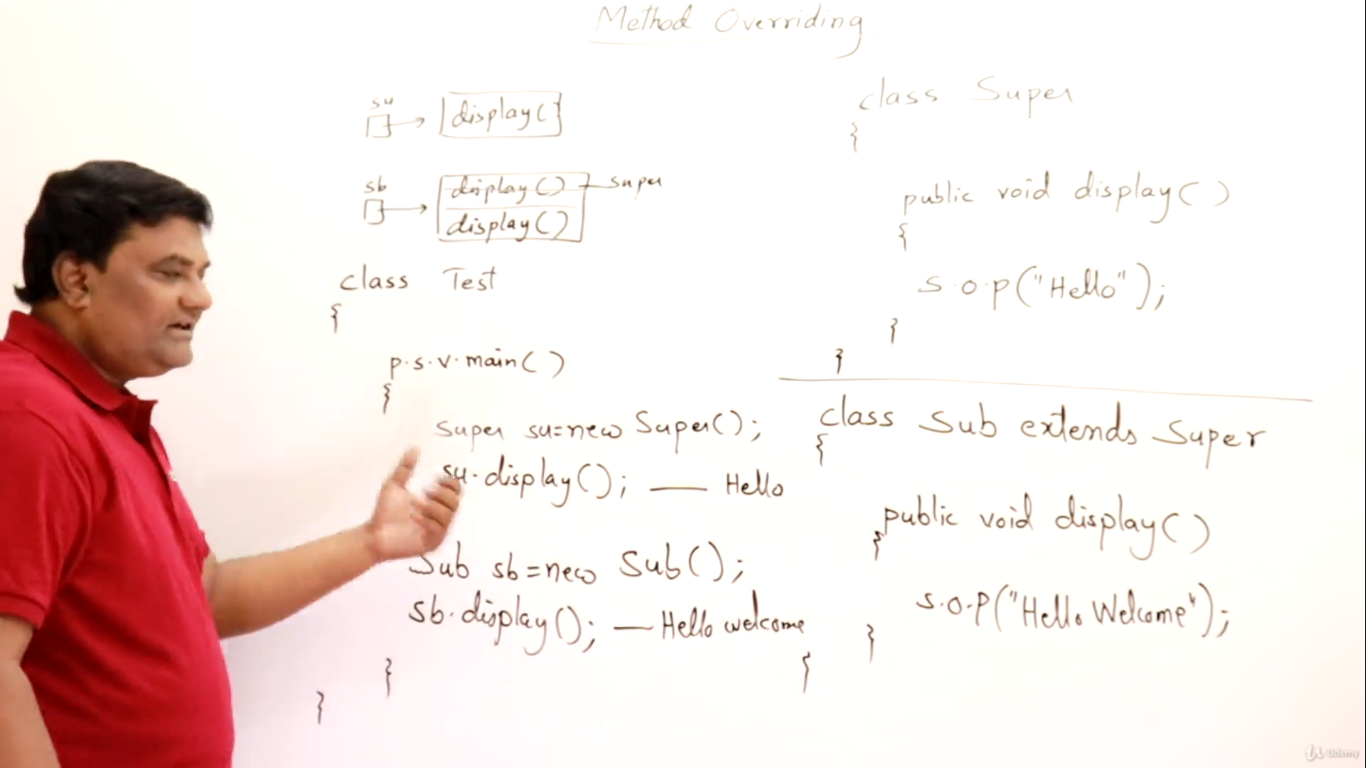 Method Overriding
su
display()
sb
display() super
display()
class Test
{
p.s.v.main()
{
Super su=new Super();
su.display(); — Hello
Sub sb=new Sub();
sb.display(); — Hello welcome
}
}
class Super
{
public void display()
{
s.o.p("Hello");
}
}
class Sub extends Super
{
public void display()
{
s.o.p("Hello Welcome");
}
{
Udemy